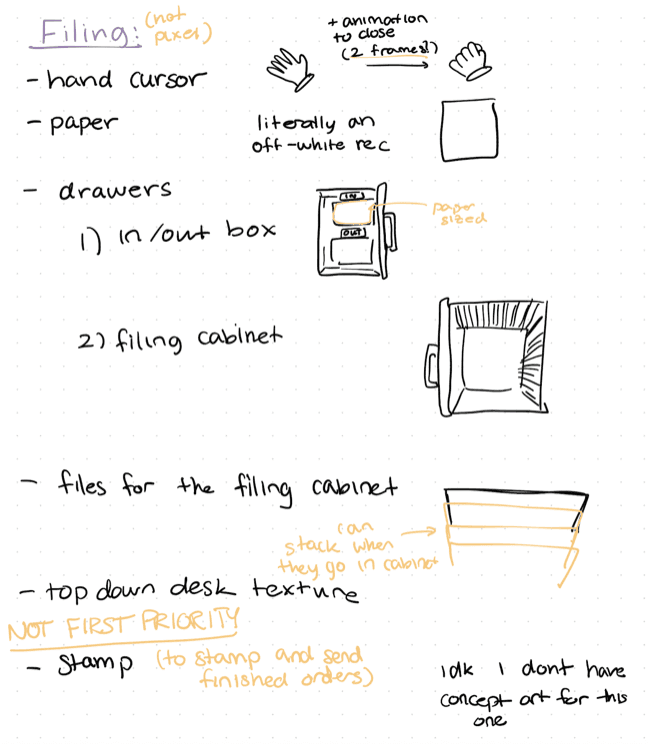 Filing: (not
pixel)
- hand cursor
+ animation
to close
(2 frames?)
- paper
literally an
off-white rec
- drawers
1) in/out box
IN
OUT
paper
sized
2) filing cabinet
- files for the filing cabinet
can
stack when
they go in cabinet
- top down desk texture
NOT FIRST PRIORITY
- stamp (to stamp and send
finished orders)
idk I dont have
concept art for this
one